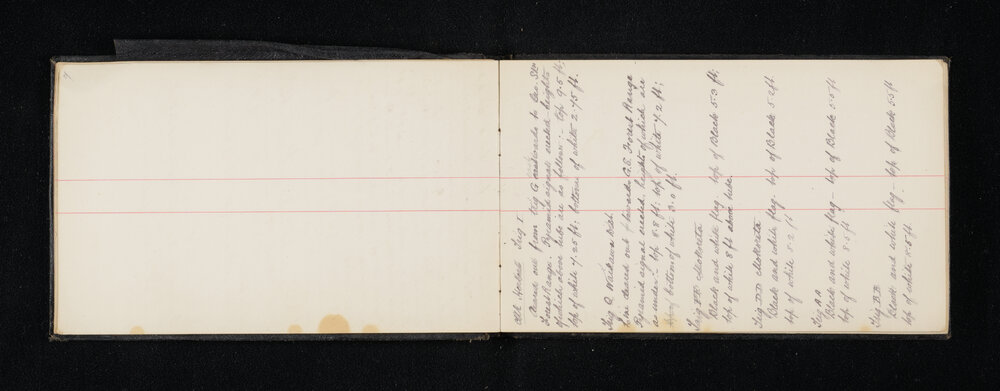 Old Station Trig I.
from Trig C towards to
Forest Range. Pyramid signal erected heights
of which above hubs are as follows:- top 9.5 ft;
top of white 7.25 ft; bottom of white 2.75 ft.
Trig Q Waikawa Dist.
Line cleared out towards A.E. Forest Range
Pyramid signal erected, heights of which are
as under:- top 8.8 ft. top of white 7.2 ft;
bottom of white 3.0 ft.
Trig Mokoreta
Black and white flag top of Black 5.3 ft;
top of white 8 ft above hub.
Trig D.D. Mokoreta
Black and white flag top of Black 5.2 ft.
top of white 8.2 ft
Trig A.A
Black and white flag - top of Black 5.5 ft
top of white 8.5 ft
Trig B.B.
Black and white flag - top of Black 5.5 ft
top of white 8.5 ft.